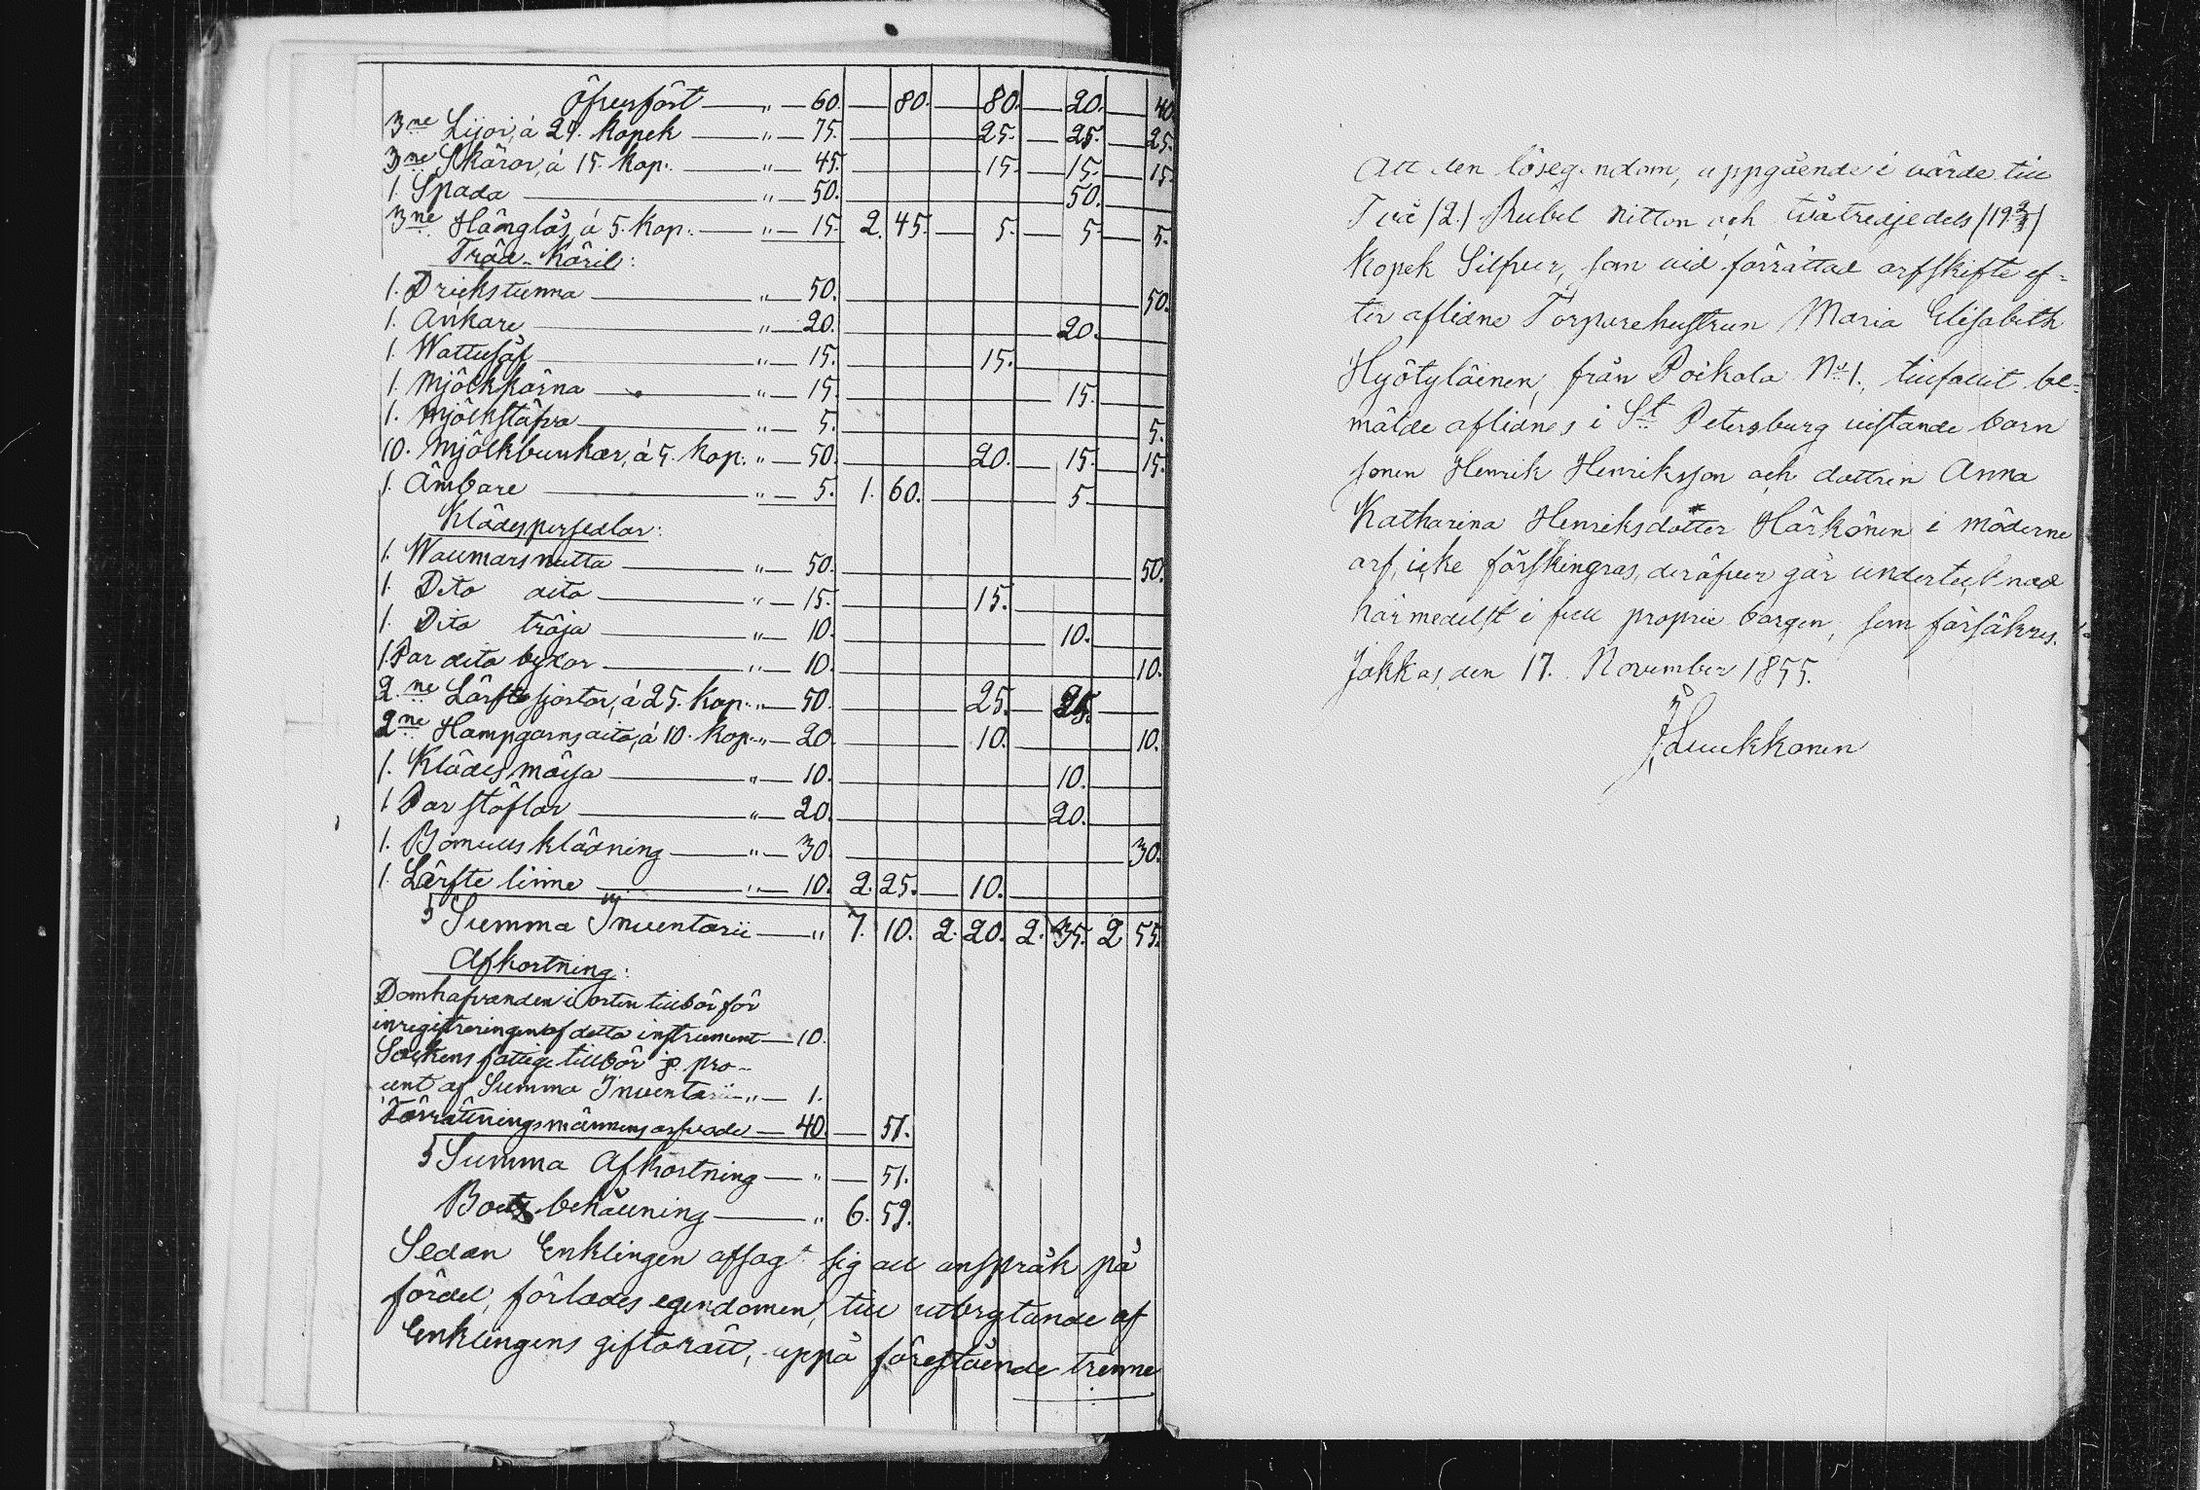 Öfverfört — " — 60. — 80. — 80. — 20. — 40.
3ne Lijor, á 25. Kopek — " — 75. — 25. — 25. — 25.
3ne Skäror, á 15. Kop. — " — 45. — 15. — 15. — 15.
1. Spada — " — 50. — 50.
3ne Hänglås, á 5. Kop. — " — 15. 2. 45. — 5. — 5. — 5.
Träd-Käril:
1. Drickstunna — " — 50. — 50.
1. Ankare — " — 20. — 20.
1. Wattusåf — " — 15. — 15.
1. Mjölkkärna — " — 15. — 15.
1. Mjölkstäfva — " — 5. — 5.
10. Mjölkbunkar, á 5. Kop. " — 50. — 20. — 15. — 15.
1. Ämbare — " — 5. 1. 60. — 5.
Klädespersedlar:
1. Wallmarsmutta — " — 50. — 50.
1. Dito dito — " — 15. — 15.
1. Dito tröja — " — 10. — 10.
1. Par dito byxor — " — 10. — 10.
2ne Lärftsjortor, á 25. Kop. " — 50. — 25. — 25. —
2ne Hampgarns dito, á 10. Kop. " — 20. — 10. — 10.
1. Klädes mössa — " — 10. — 10.
1 Par stöflar — " — 20. — 20.
1. Bomulls klädning — " — 30. — 30.
1. Lärfts linne — " — 10. 2. 25. — 10.
Summa Inventarii — " 7. 10. 2. 20. 2. 35. 2 55.
Afkortning:
Domhafvanden i orten tillbör för
inregistreringen af detta instrument — 10.
Sockens fattige tillbör pro-
cent af Summa Inventarii " — 1.
Förrättningsmännens arfvode — 40. — 51.
Summa Afkortning — " — 51.
Boets behållning — " 6. 59.
Sedan Enklingen afsagt sig all anspråk på
fördel, förlades egendomen, till utbrytande af
Enklingens giftorätt, uppå förestående trenne
Att den lösegendom, uppgående i värde till
Två /2./ Rubel nitton och tvåtredjedels /19 2/3/
Kopek Silfver, som vid förrättad arfskifte ef-
ter aflidne Torparehustrun Maria Elisabeth
Hyötyläinen, från Poikola No 1., tillfallit be-
mälde aflidnes i St Petersburg vistande barn
sonen Henrik Henriksson och dottren Anna
Katharina Henriksdotter Härkönen i möderne
arf, icke förskingras, deröfver går undertecknad
härmedelst i full proprie borgen, som försäkras.
Jokkas, den 17. November 1855.
J. Luukkonen